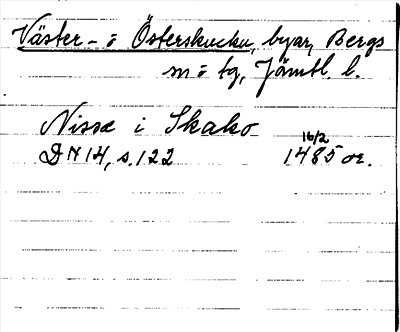 Väster- o Österskucku, byar, Bergs
sn o tg, Jämtl. l.
Nisse i Skako 16/2
DN 14, s. 122 1485 or.